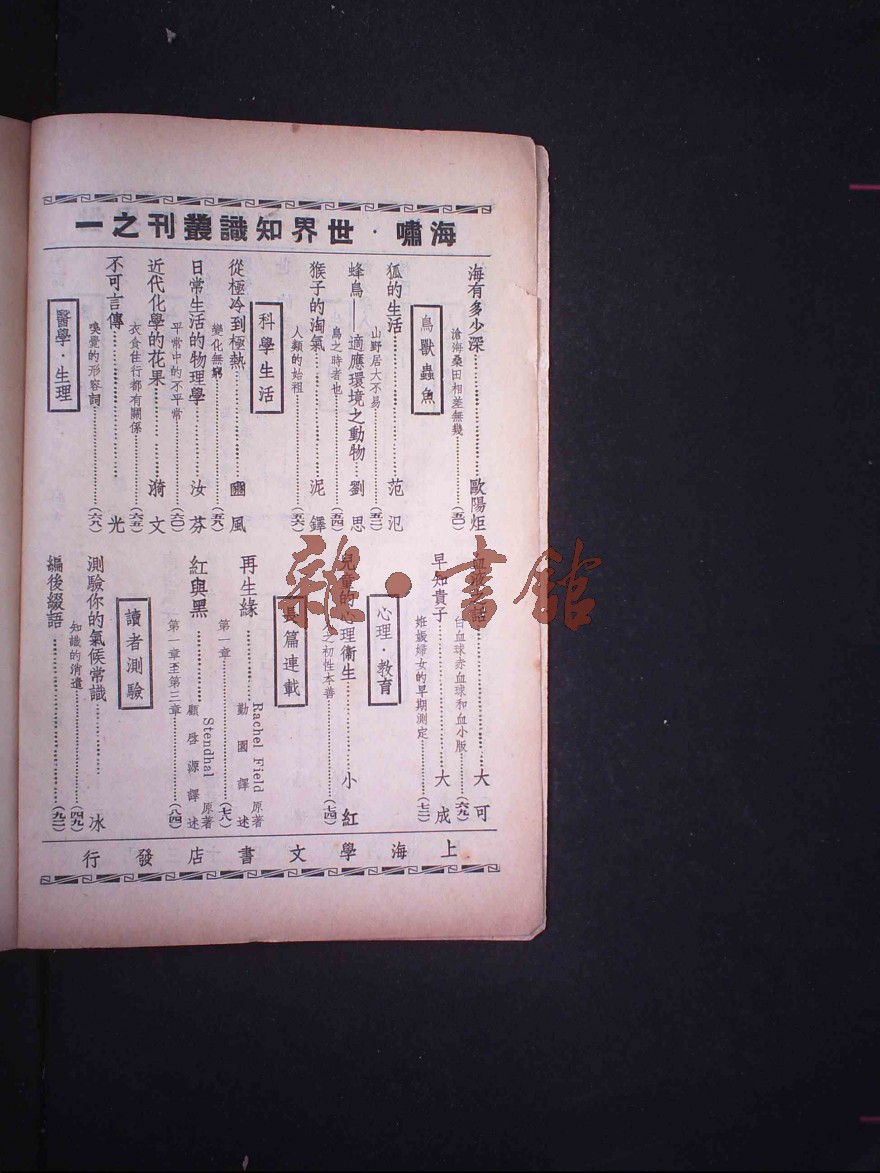 海嘯·世界知識叢刊之一
海有多少深……歐陽炬
滄海桑田相差無幾……(五〇)
鳥獸蟲魚
狐的生活……范氾
山野居大不易……(五二)
蜂鳥——適應環境之動物……劉思
鳥之時者也……(五四)
猴子的淘氣……泥鐸
人類的始祖……(五六)
科學生活
從極冷到極熱……風
變化無窮……(五九)
日常生活的物理學……汝芬
平常中的不平常……(六〇)
近代化學的花果……漪文
衣食住行都有關係……(六五)
不可言傳……光
嗅覺的形容詞……(六八)
醫學·生理
血液之話……大可
白血球赤血球和血小版……(六九)
早知貴子……大成
姙娠婦女的早期測定……(七二)
心理·教育
兒童的心理衛生……小紅
之初性本善……(七四)
長篇連載
再生緣……Rachel Field 原著
勤園譯述
第一章……(七八)
紅與黑……Stendhal 原著
顧啓源譯述
第一章至第三章……(八四)
讀者測驗
測驗你的氣候常識……冰
知識的消遣……(四九)
編後綴語……(九二)
上海學文書店發行
雜·書館